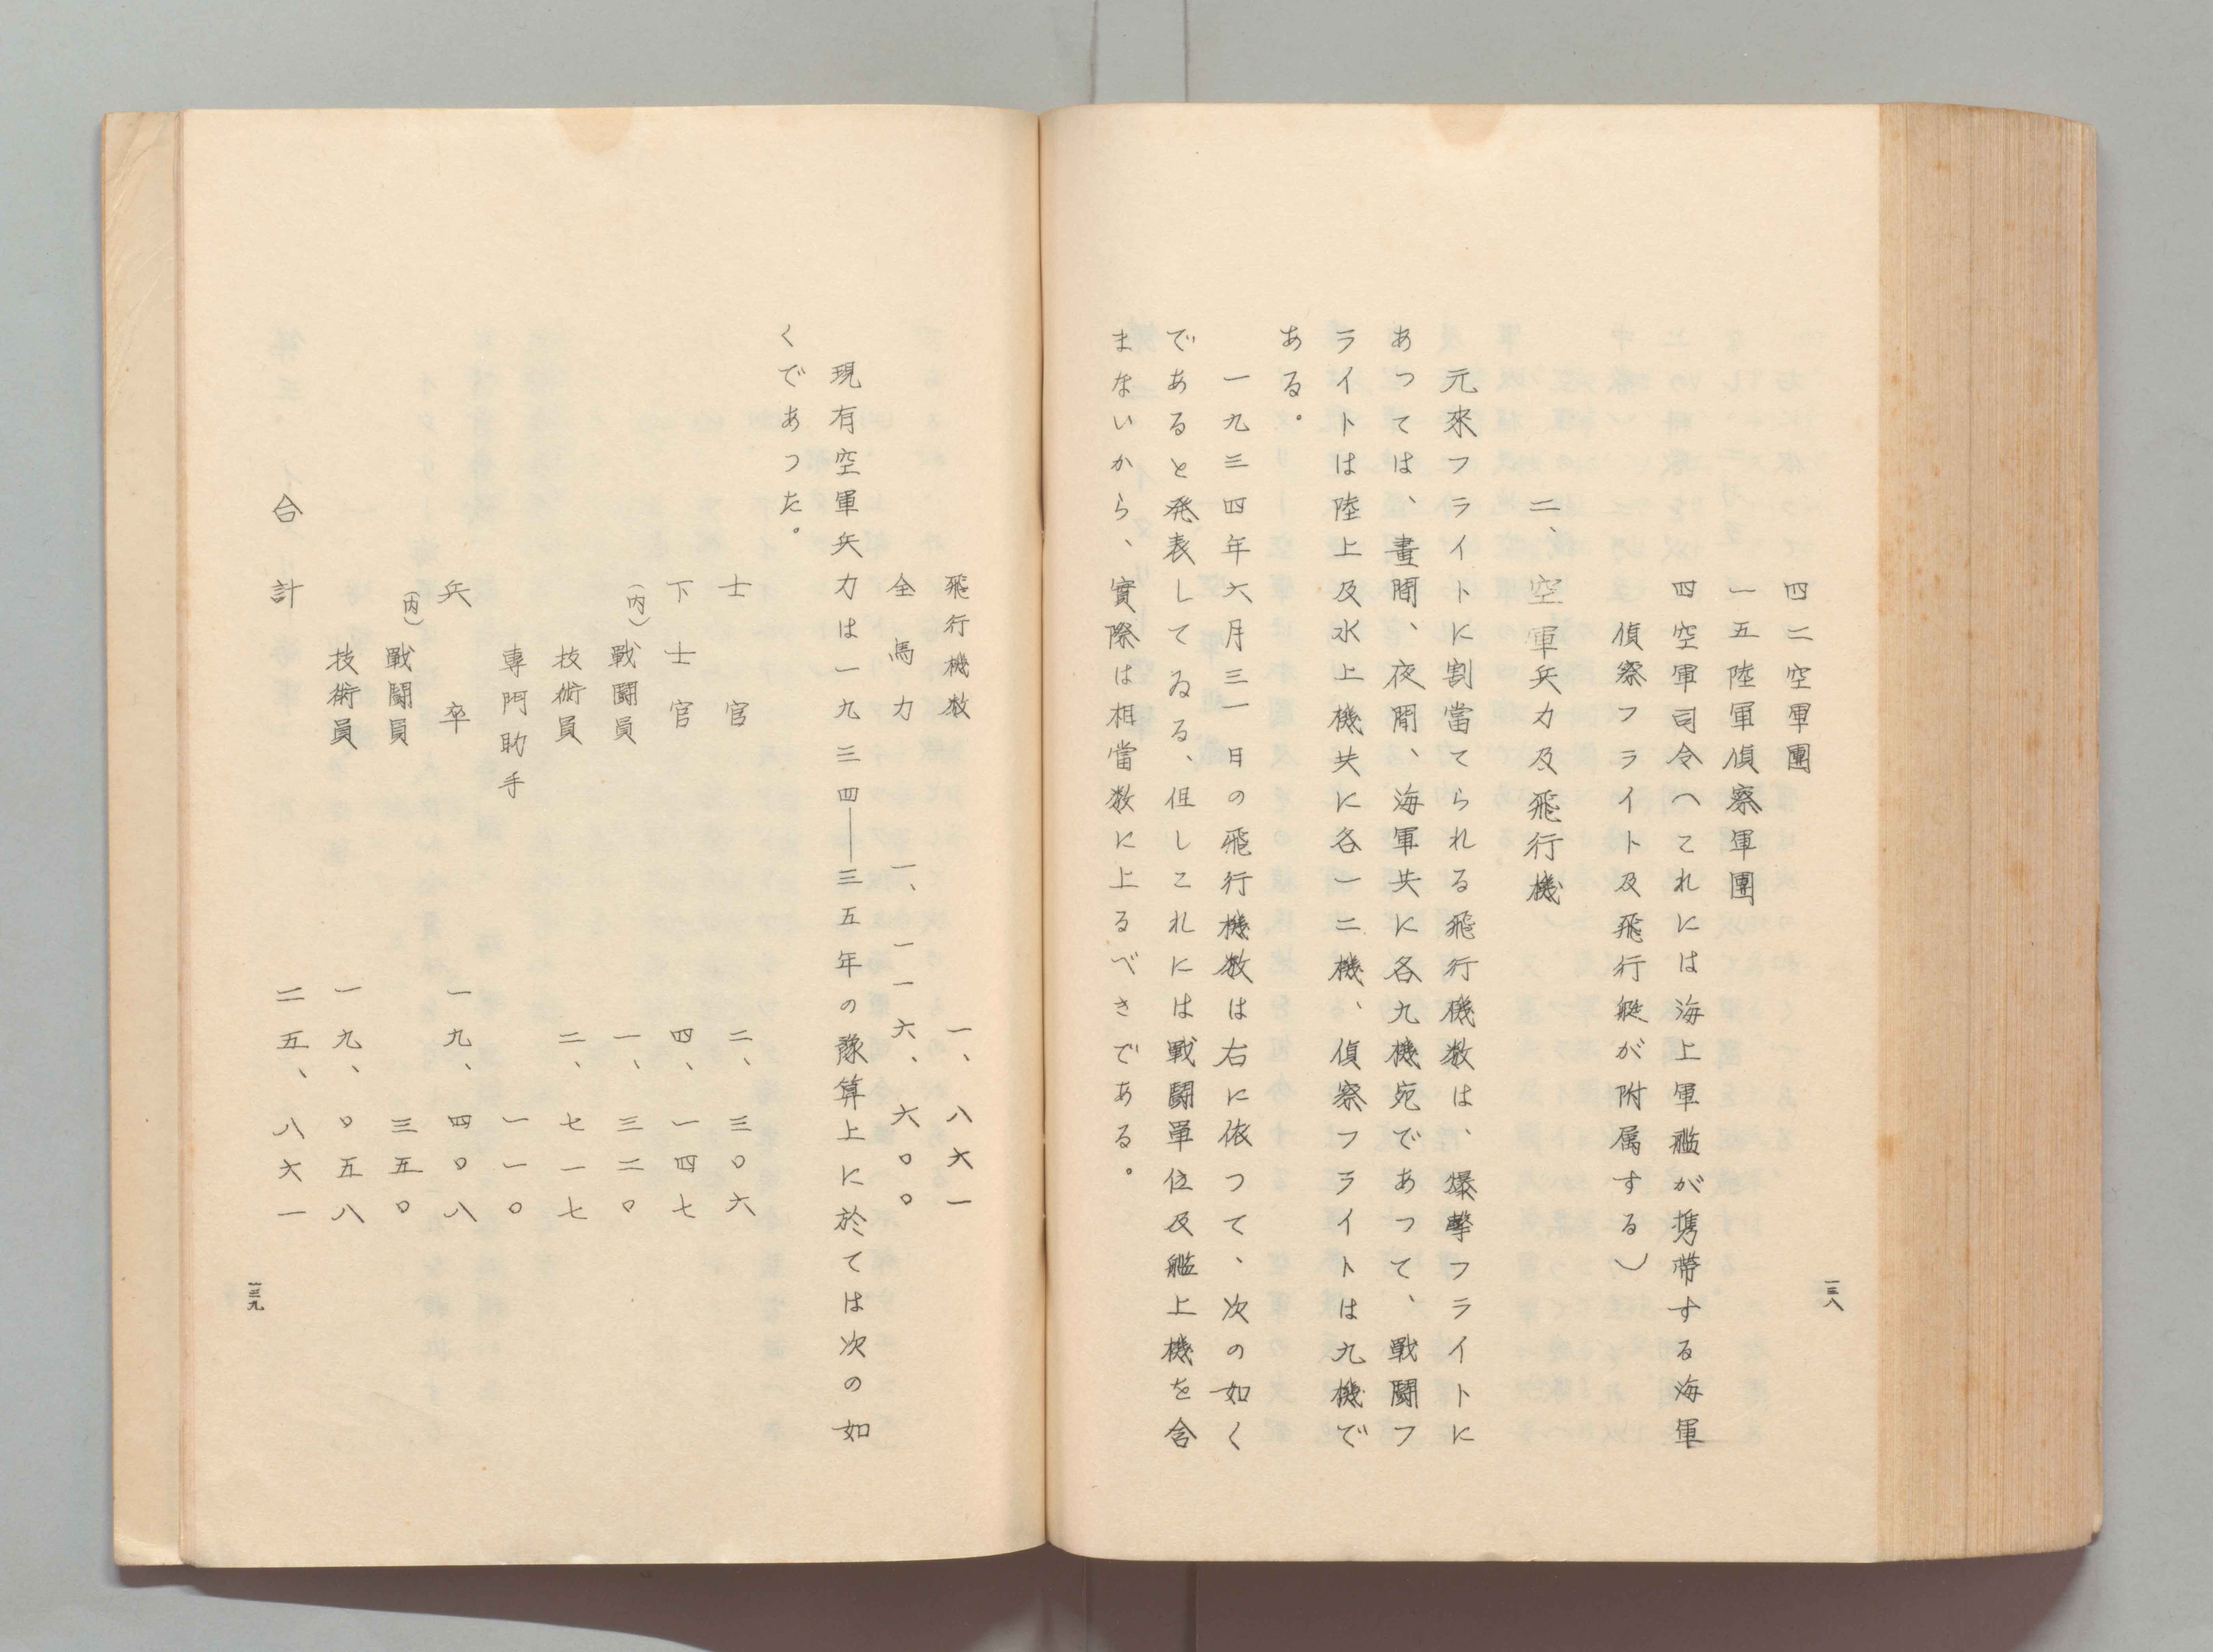 四二空軍團
一五陸軍偵察軍團
四空軍司令（これには海上軍艦が携帶する海軍
偵察フライト及飛行艇が附属する）
二、空軍兵力及飛行機
元來フライトに割當てられる飛行機数は、爆擊フライトに
あつては、晝間、夜間、海軍共に各九機宛であつて、戰闘フ
ライトは陸上及水上機共に各一二機、偵察フライトは九機で
ある。
一九三四年六月三一日の飛行機数は右に依つて、次の如く
であると発表してゐる、但しこれには戰闘單位及艦上機を含
まないから、實際は相當数に上るべきである。
一三八
飛行機数　一、八六一
全馬力　一、一一六、六〇〇
現有空軍兵力は一九三四——三五年の豫算上に於ては次の如
くであつた。
士官　二、三〇六
下士官　四、一四七
（内）戰闘員　一、三二〇
技術員　二、七一七
專門助手　一一〇
兵卒　一九、四〇八
（内）戰闘員　三五〇
技術員　一九、〇五八
合計　二五、八六一
一三九